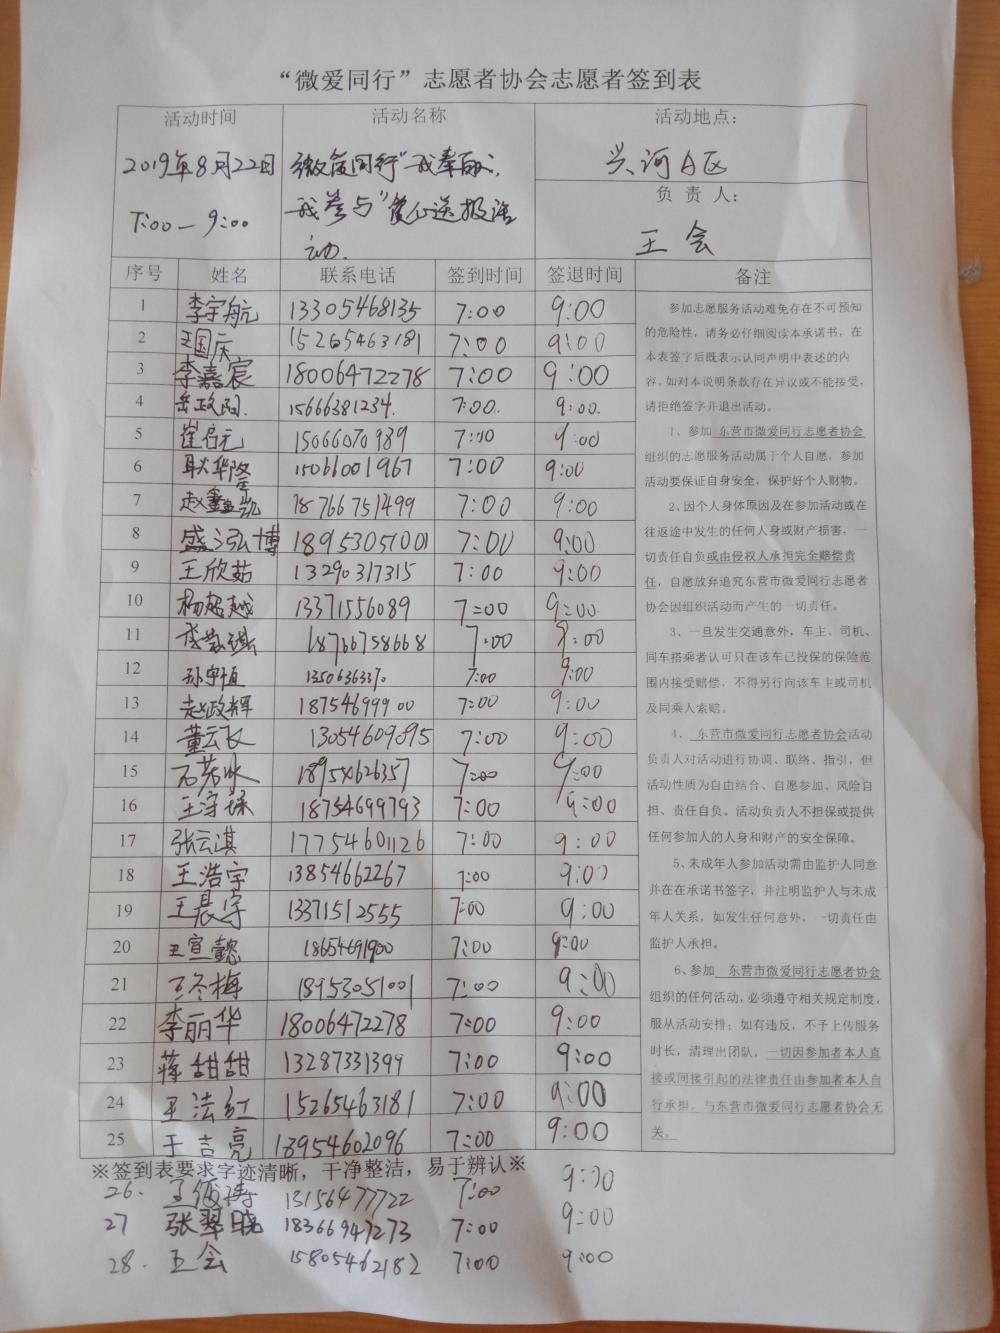 “微爱同行”志愿者协会志愿者签到表
活动时间 活动名称 活动地点：
2019年8月22日
7:00—9:00
微爱同行"我奉献、
我参与"爱心送报活
动.
兴河A区
负责人：
王会
序号 姓名 联系电话 签到时间 签退时间 备注
1 李宇航 13305468135 7:00 9:00
2 王国庆 15265463181 7:00 9:00
3 李嘉宸 18006472278 7:00 9:00
4 岳政阳. 15666381234. 7:00. 9:00.
5 崔启元 15066070989 7:00 9:00
6 耿华隆 15066001967 7:00 9:00
7 赵鑫凯 18766751499 7:00 9:00
8 盛泓博 18953051001 7:00 9:00
9 王欣茹 13290317315 7:00 9:00
10 杨超越 13371556089 7:00 9:00
11 18766758668 7:00 9:00
12 孙宇恒 7:00 9:00
13 赵政辉 18754699900 7:00 9:00
14 董云飞 13054609095 7:00 9:00
15 石若冰 18954626357 7:00 9:00
16 王守绿 18754699793 7:00 9:00
17 张云淇 17754601126 7:00 9:00
18 王浩宇 13854662267 7:00 9:00
19 王晨宇 13371512555 7:00 9:00
20 王宣懿 18654691900 7:00 9:00
21 王冬梅 18953051001 7:00 9:00
22 李丽华 18006472278 7:00 9:00
23 蒋甜甜 13287331399 7:00 9:00
24 王法红 15265463181 7:00 9:00
25 于吉亮 13954602096 7:00 9:00
参加志愿服务活动难免存在不可预知
的危险性，请务必仔细阅读本承诺书，在
本表签字后既表示认同声明中表述的内
容。如对本说明条款存在异议或不能接受，
请拒绝签字并退出活动。
1、参加 东营市微爱同行志愿者协会
组织的志愿服务活动属于个人自愿，参加
活动要保证自身安全，保护好个人财物。
2、因个人身体原因及在参加活动或在
往返途中发生的任何人身或财产损害，一
切责任自负或由侵权人承担完全赔偿责
任，自愿放弃追究东营市微爱同行志愿者
协会因组织活动而产生的一切责任。
3、一旦发生交通意外，车主、司机、
同车搭乘者认可只在该车已投保的保险范
围内接受赔偿，不得另行向该车主或司机
及同乘人索赔。
4、东营市微爱同行志愿者协会活动
负责人对活动进行协调、联络、指引，但
活动性质为自由结合、自愿参加、风险自
担、责任自负。活动负责人不担保或提供
任何参加人的人身和财产的安全保障。
5、未成年人参加活动需由监护人同意
并在在承诺书签字，并注明监护人与未成
年人关系，如发生任何意外，一切责任由
监护人承担。
6、参加 东营市微爱同行志愿者协会
组织的任何活动，必须遵守相关规定制度，
服从活动安排；如有违反，不予上传服务
时长，清理出团队，一切因参加者本人直
接或间接引起的法律责任由参加者本人自
行承担，与东营市微爱同行志愿者协会无
关。
※签到表要求字迹清晰，干净整洁，易于辨认※
26. 13156477722 7:00 9:00
27 张翠晓 18366947273 7:00 9:00
28. 王会 15805462182 7:00 9:00